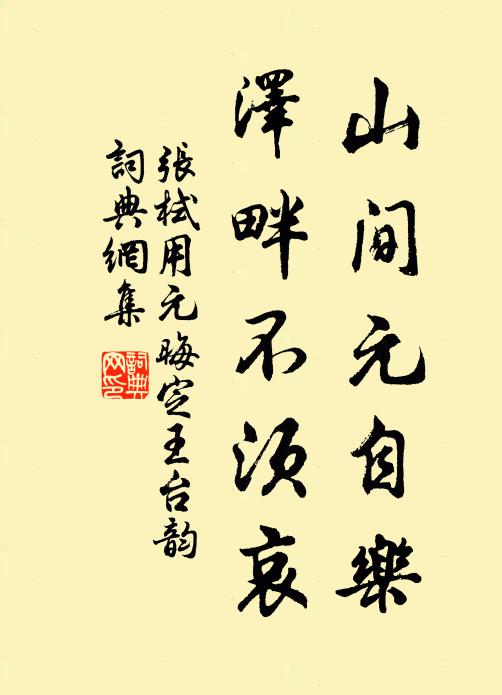 山間元自樂
澤畔不須哀
張栻用元晦定王台韵
詞典網集
詞典網印